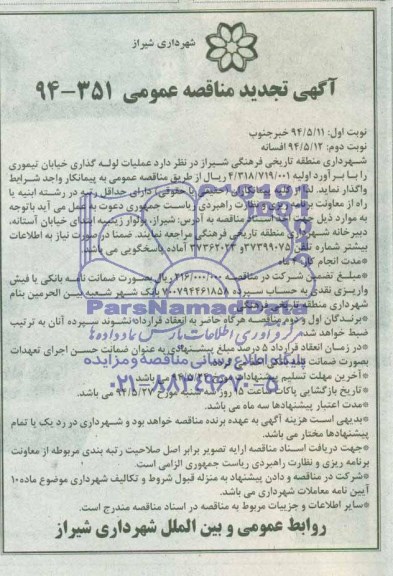 شهرداری شیراز
آگهی تجدید مناقصه عمومی ۳۵۱-۹۴
نوبت اول: ۹۴/۵/۱۱ خبرجنوب
نوبت دوم: ۹۴/۵/۱۲ افسانه
شهرداری منطقه تاریخی فرهنگی شیراز در نظر دارد عملیات لوله گذاری خیابان تیموری
را با برآورد اولیه ۴/۳۱۸/۷۱۹/۰۰۱ ریال از طریق مناقصه عمومی به پیمانکار واجد شرایط
واگذار نماید. لذا از کلیه پیمانکاران (حقیقی یا حقوقی) دارای حداقل رتبه در رشته ابنیه یا
راه از معاونت برنامه ریزی و نظارت راهبردی ریاست جمهوری دعوت به عمل می آید باتوجه
به موارد ذیل جهت اخذ اسناد مناقصه به آدرس: شیراز، بلوار زینبیه ابتدای خیابان آستانه،
دبیرخانه شهرداری منطقه تاریخی فرهنگی مراجعه نمایند. ضمنا در صورت نیاز به اطلاعات
بیشتر شماره تلفن ۳۷۳۹۹۰۷۵ و ۳۷۳۶۲۰۳۳ آماده پاسخگویی می باشد.
*مدت انجام کار: ماه
*مبلغ تضمین شرکت در مناقصه ۲۱۶/۰۰۰/۰۰۰ ریال بصورت ضمانت نامه بانکی یا فیش
واریزی نقدی به حساب سپرده ۷۰۰۷۹۴۴۶۱۸۵۸ بانک شهر شعبه بین الحرمین بنام
شهرداری منطقه تاریخی فرهنگی
*برندگان اول و دوم مناقصه هرگاه حاضر به انعقاد قرارداد نشوند سپرده آنان به ترتیب
ضبط خواهد شد.
*در زمان انعقاد قرارداد ۵ درصد مبلغ پیشنهادی به عنوان ضمانت حسن اجرای تعهدات
بصورت ضمانت نامه بانکی اخذ می گردد.
*آخرین مهلت تسلیم پیشنهاد مورخ می باشد.
*تاریخ بازگشایی پاکات ساعت ۱۵ روز شنبه مورخ ۹۴/۵/۲۷ می باشد.
*مدت اعتبار پیشنهادها سه ماه می باشد.
*بدیهی است هزینه آگهی به عهده برنده مناقصه خواهد بود و شهرداری در رد یک یا تمام
پیشنهادها مختار می باشد.
*جهت دریافت اسناد مناقصه ارایه تصویر برابر اصل صلاحیت رتبه بندی مربوطه از معاونت
برنامه ریزی و نظارت راهبردی ریاست جمهوری الزامی است.
*شرکت در مناقصه و دادن پیشنهاد به منزله قبول شروط و تکالیف شهرداری موضوع ماده۱۰
آیین نامه معاملات شهرداری می باشد.
*سایر اطلاعات و جزییات مربوط به مناقصه در اسناد مناقصه مندرج است.
روابط عمومی و بین الملل شهرداری شیراز
ParsNamadData
مرکز فرآوری اطلاعات پارس نماد داده ها
پایگاه اطلاع رسانی مناقصه و مزایده
۰۲۱-۸۸۳۴۹۶۷۰-۵